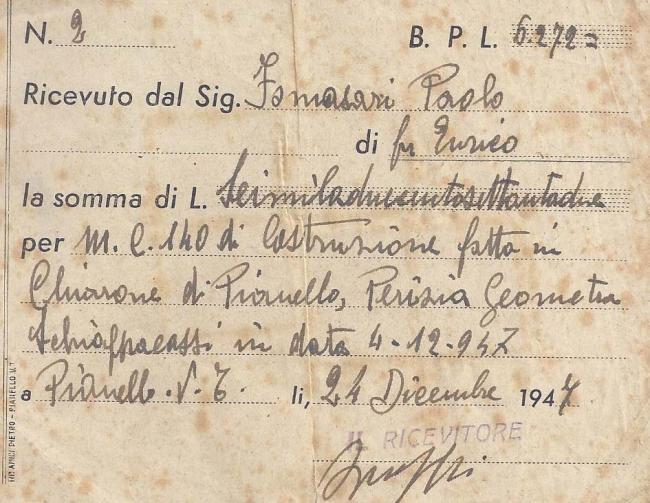 N. 2 B. P. L. 6.272=
Ricevuto dal Sig. Tomasari Paolo
di fu Enrico
la somma di L. Seimiladuecentosettantadue
per M. C. 140 di Costruzione fatta in
Chiarone di Pianello, Perizia Geometra
Schiappacassi in data 4-12-947
a Pianello. V. T. li, 24 Dicembre 1947
IL RICEVITORE
TIP. AMICI PIETRO - PIANELLO V. T.